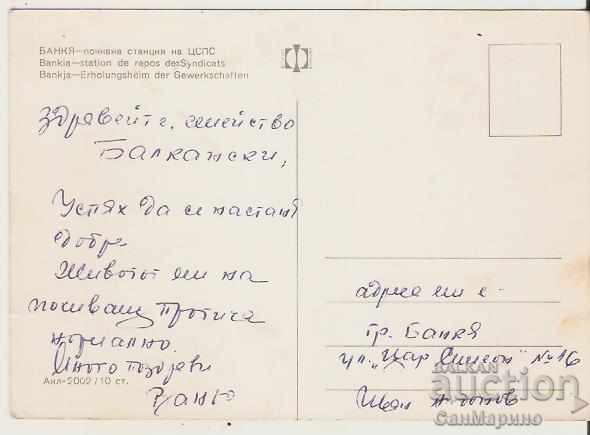 БАНКЯ—почивна станция на ЦСПС
Bankia—station de repos des Syndicats
Bankja—Erholungsheim der Gewerkschaften
Здравейте, семейство
Балкански,
Успях да се настаня
добре
Животът ми на
почиващ протича
нормално.
Много поздрави
Акл-2002/10 ст.
адреса ми е -
гр. Банкя
ул. „Цар Симеон" № 16
Иван
BALKAN
auction
СанМарино